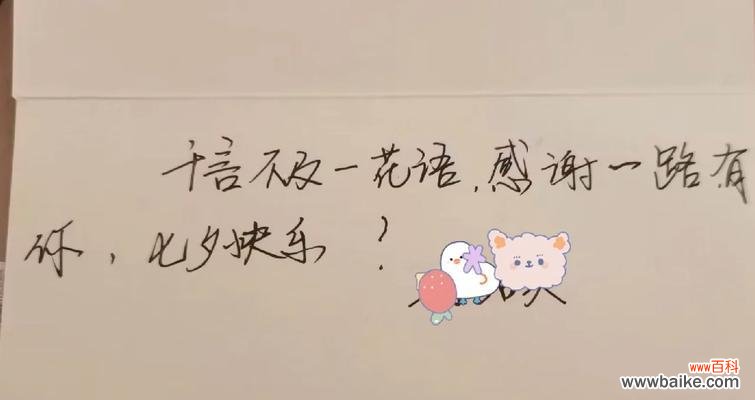 千言不及一花语,感谢一路有
你,七夕快乐?
www百科
www.baike.com